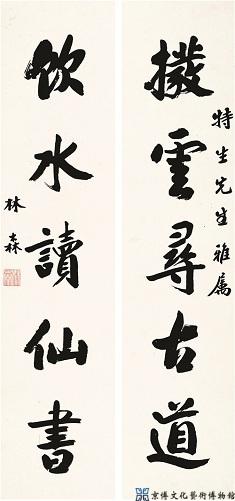 撥雲尋古道
特生先生雅屬
飲水讀仙書
林森
京博文化藝術博物館